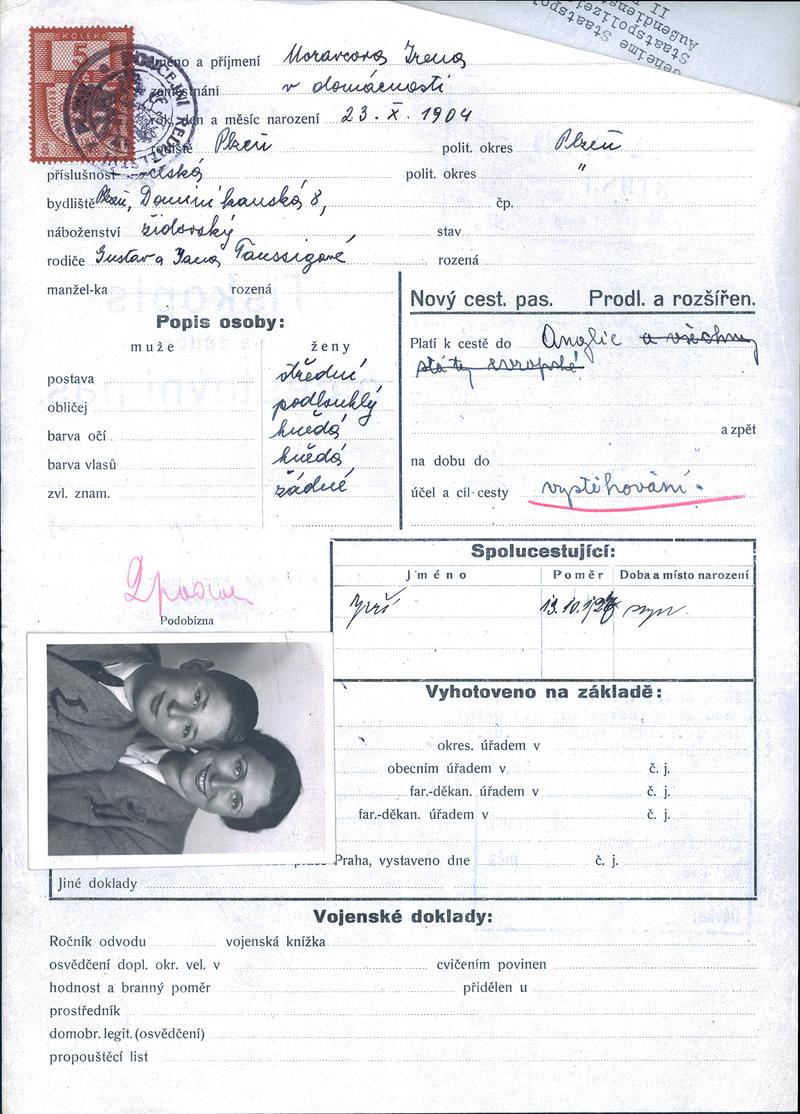 Geheime Staatspol
Staatspolizei
Außendienst
II
KOLEK
5
Jméno a příjmení Moravcova Irena
zaměstnání v domácnosti
rok, den a měsíc narození 23. X. 1904
Plzeň polit. okres Plzeň
příslušnost polit. okres "
bydliště Plzeň, Dominikanská 8, čp.
náboženství židovský stav
rodiče Gustav a Jana Taussigové rozená
manžel-ka rozená
Nový cest. pas. Prodl. a rozšířen.
Popis osoby:
muže ženy
Platí k cestě do Anglie a všechny
státy evropské
postava střední
obličej podlouhlý
barva očí hnědá
a zpět
barva vlasů hnědá
na dobu do
zvl. znam. žádné
účel a cíl-cesty vystěhování.
Spolucestující:
Jméno Poměr Doba a místo narození
Jiří 13. 10. syn
Podobizna
Vyhotoveno na základě:
okres. úřadem v
obecním úřadem v č. j.
far.-děkan. úřadem v č. j.
far.-děkan. úřadem v č. j.
Praha, vystaveno dne č. j.
Jiné doklady
Vojenské doklady:
Ročník odvodu vojenská knížka
osvědčení dopl. okr. vel. v cvičením povinen
hodnost a branný poměr přidělen u
prostředník
domobr. legit. (osvědčení)
propouštěcí list